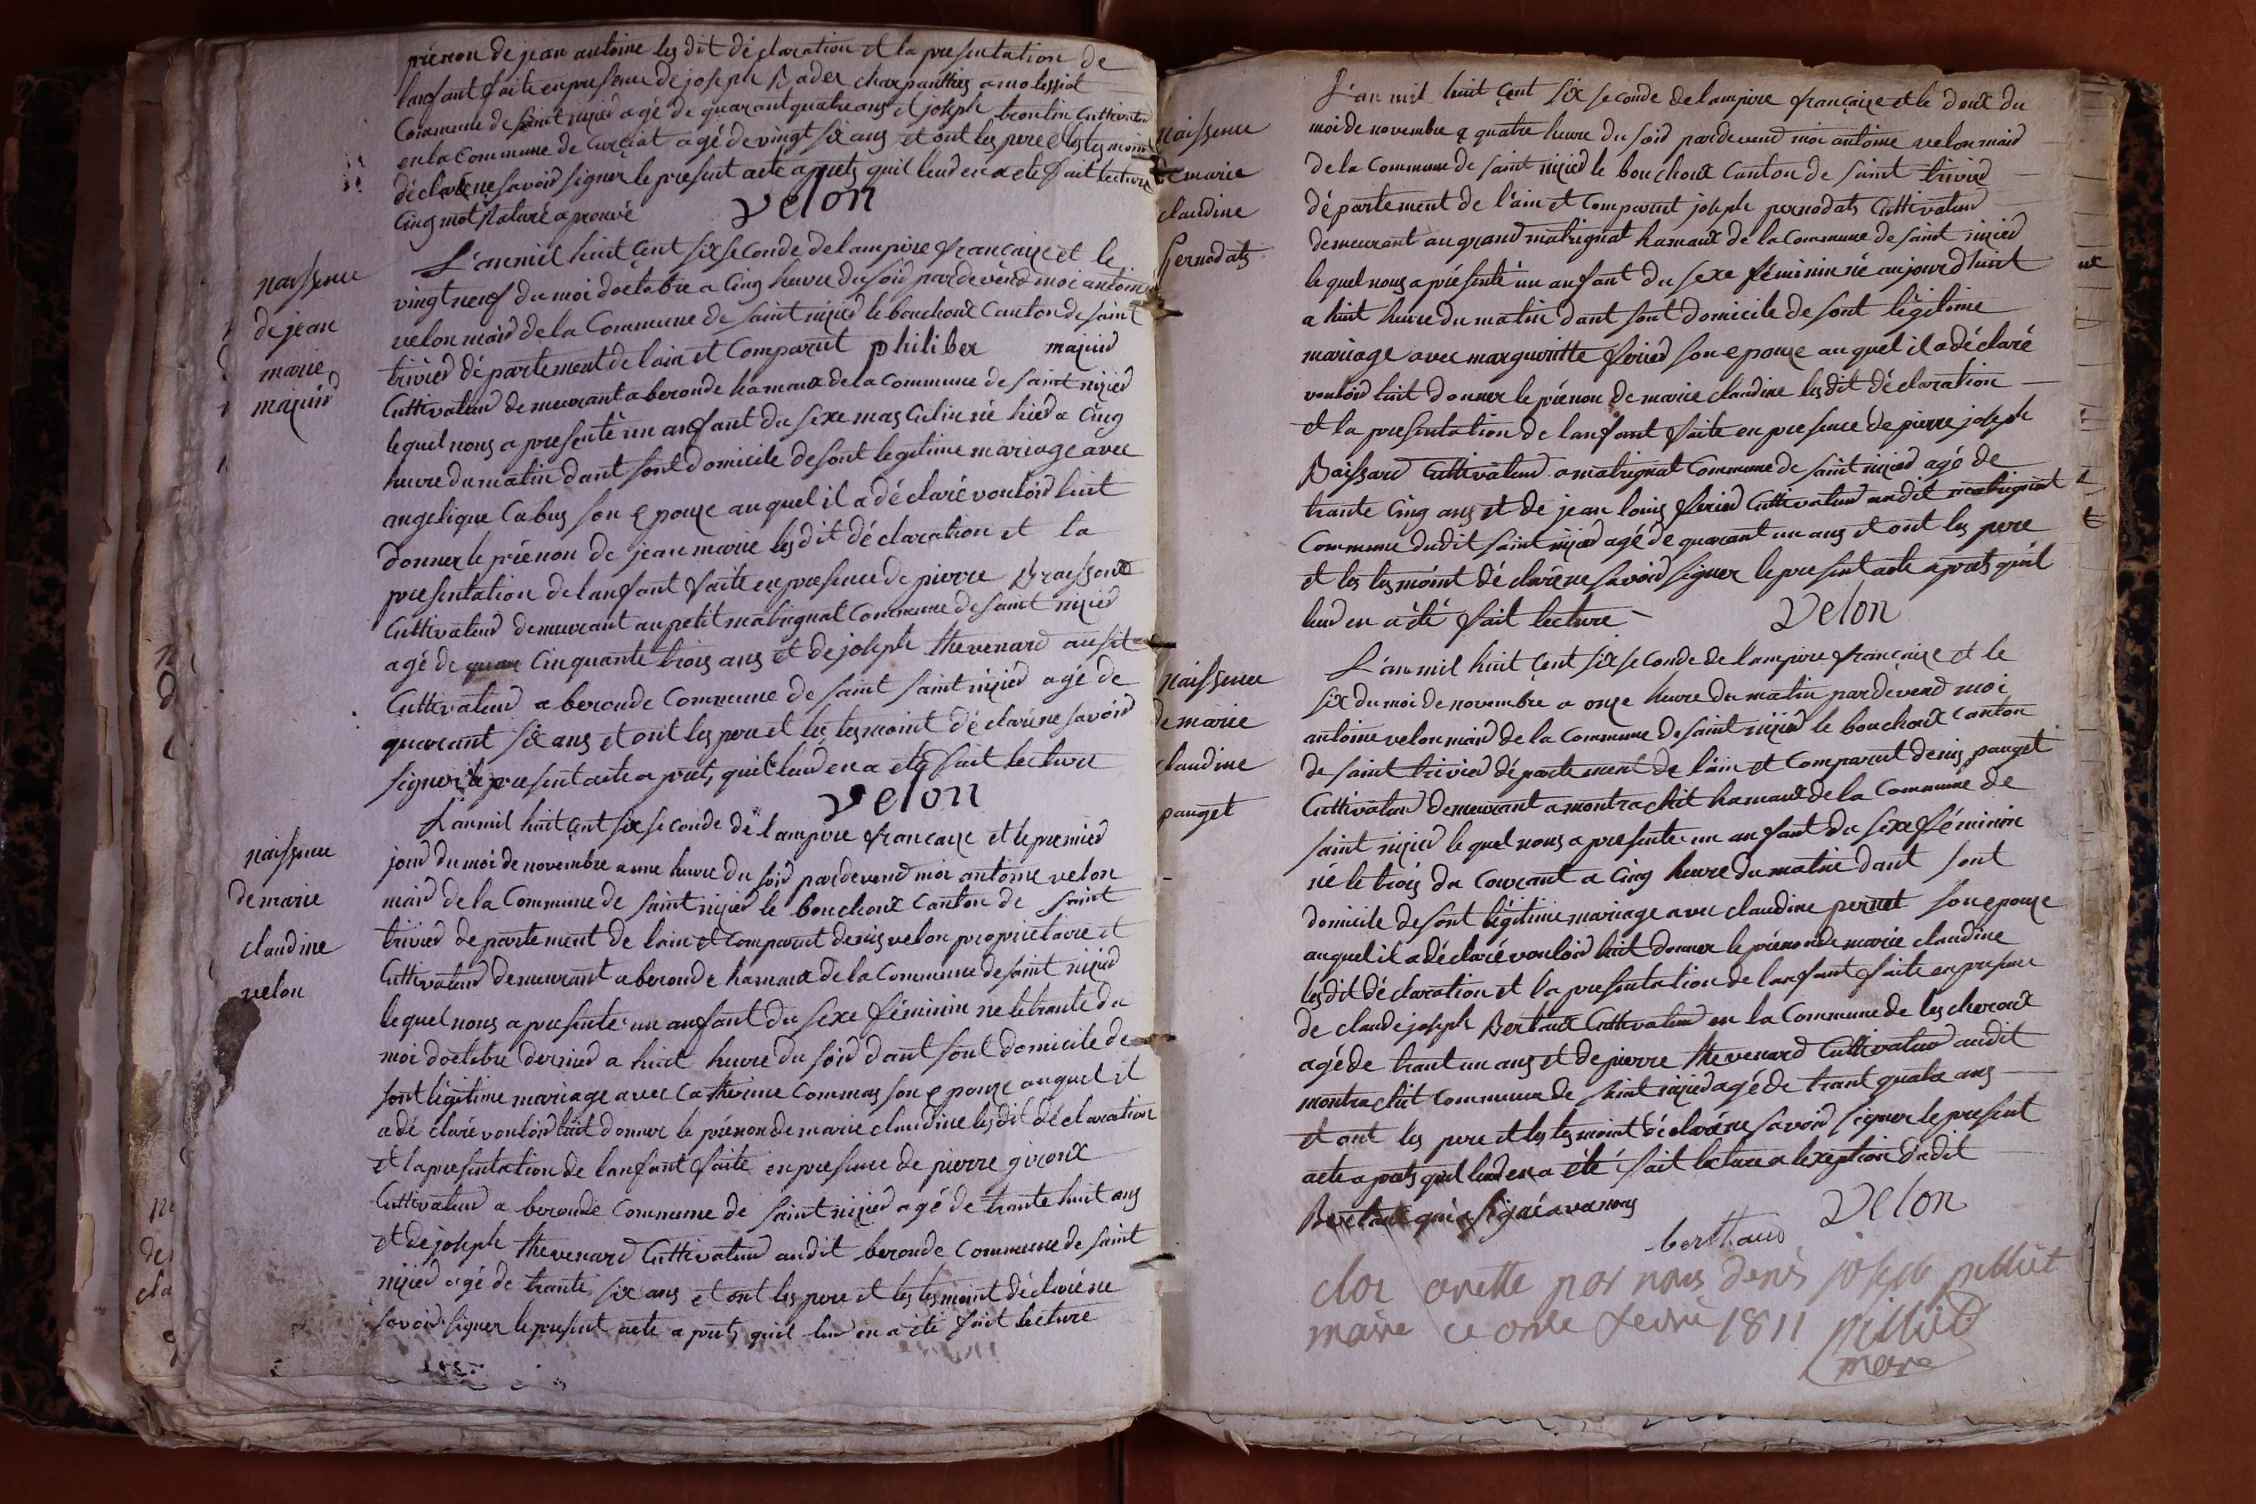 prénon de jean antoine les dit déclaration et la presentation de
lanfant faite en presence de joseph Bader charpanttier a molessiat
Commune de saint nizier agé de quarant quatre ans et joseph broutin Cuttivateur
en la Commune de Curciat agé de vingt six ans et ont les pere et les tesmoint
déclaré ne savoir signer le present acte aprets quil leur en a été fait lecture
Cinq mot raturé aprouvé velon
naissence
de jean
marie
mazuir
L'an mil huit çent six seconde de lampire françaize et le
vingt neuf du moi doctobre a Cinq heure du soir pardevend moi antoine
velon mair de la Commune de saint nizier le bouchoux Canton de saint
trivier département de lain et Comparut philiber mazuir
Cuttivateur demeurant a beronde hamaux de la Commune de saint nizier
le quel nous a presenté un anfant du sexe masculin né hier a Cinq
heure du matin dant sont domicile de sont legitime mariage avec
angelique Cabus son epouze au quel il a déclaré vouloir luit
donner le prénon de jean marie les dit déclaration et la
presentation de lanfant faite en presence de pierre Braissoud
Cuttivateur demeurant au petit matrignat Commune de saint nizier
agé de Cinquante trois ans et de joseph thevenard ausit
Cuttivateur a beronde Commune de saint saint nizier agé de
quarant six ans et ont les pere et les tesmoint déclaré ne savoir
signer le present acte aprets quil leur en a été fait lecture
velon
naissence
de marie
claudine
velon
L'an mil huit çent six seconde de lampire françaize et le premier
jour du moi de novembre a une heure du soir pardevend moi antoine velon
mair de la Commune de saint nizier le bouchoux Canton de saint
trivier departement de lain et Comparut denis velon proprietaire et
Cuttivateur demeurant a beronde hamaux de la Commune de saint nizier
le quel nous a presenté un anfant du sexe féminin né le trante du
moi doctobre dernier a huit heure du soir dant sont domicile de
sont légitime mariage avec Catherine Commas son epouze au quel il
a déclaré vouloir luit donner le prénon de marie claudine les dit déclaration
et la presentation de lanfant faite en presence de pierre giroux
Cuttivateur a beronde Commune de saint nizier agé de trante huit ans
et de joseph thevenard Cuttivateur audit beronde Commune de saint
nizier agé de trante six ans et ont les pere et les tesmoint déclaré ne
savoir signer le present acte aprets quil leur en a été fait lecture
naissence
de marie
claudine
Pernodats
L'an mil huit çent six seconde de lampire françaize et le deux du
moi de novembre a quatre heure du soir pardevend moi antoine velon mair
de la Commune de saint nizier le bouchoux Canton de saint trivier
département de l'ain et Comparut joseph pernodats Cuttivateur
demeurant au grand matrignat hamaux de la Commune de saint nizier
le quel nous a présenté un anfant du sexe féminin né aujourdhuit
a huit heure du matin dant sont domicile de sont légitime
mariage avec margueritte ferier son epouze au quel il a déclaré
vouloir luit donner le prénon de marie claudine les dit déclaration
et la presentation de lanfant faite en presence de pierre joseph
Baissard Cuttivateur a matrignat Commune de saint nizier agé de
trante Cinq ans et de jean louis ferier Cuttivateur audit matrignat
Commune dudit saint nizier agé de quarant un ans et ont les pere
et les tesmoint déclaré ne savoir signer le present acte aprets quil
leur en a été fait lecture velon
naissence
de marie
claudine
pauget
L'an mil huit çent six seconde de lampire françaize et le
six du moi de novembre a onze heure du matin pardevend moi
antoine velon mair de la Commune de saint nizier le bouchoux Canton
de saint trivier département de l'ain et Comparut denis pauget
Cuttivateur demeurant a montrachit hamaux de la Commune de
saint nizier le quel nous a presenté un anfant du sexe féminin
né le trois du Courant a Cinq heure du matin dant sont
domicile de sont légitime mariage avec claudine pernet son epouze
au quel il a déclaré vouloir luit donner le prénon de marie claudine
les dit déclaration et la presentation de lanfant faite en presence
de claude joseph Bertaux Cuttivateur en la Commune de lescheroux
agé de trant un ans et de pierre thevenard Cuttivateur audit
montrachit Commune de saint nizier agé de trant quatre ans
et ont les pere et les tesmoint déclaré ne savoir signer le present
acte aprets quil leur en a été fait lecture a lexeption dudit
Bertaux qui a signé avec nous
berthaud velon
clos arette par nous denis joseph pilliut
maire ce onze fevrie 1811 pilliut
maire